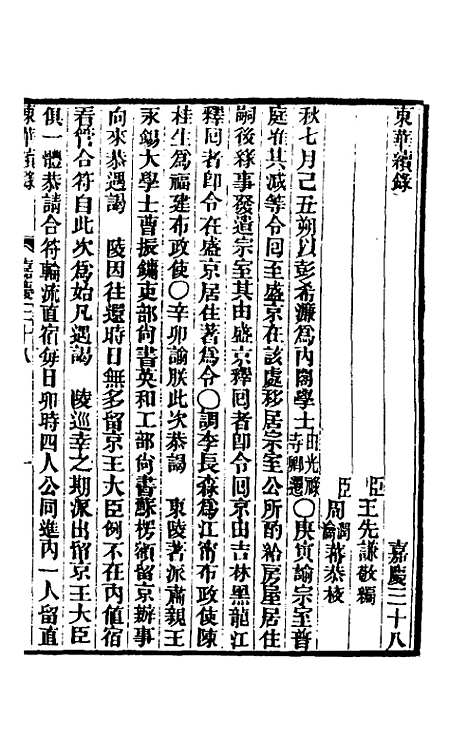 東華續錄
嘉慶三十八
臣王先謙敬編
臣周潤蕃周瀹蕃恭校
秋七月己丑朔以彭希濂爲內閣學士由光祿寺卿遷〇庚寅諭宗室普
庭准其減等令回至盛京在該處移居宗室公所酌給房屋居住
嗣後緣事發遣宗室其由盛京釋回者卽令回京由吉林黑龍江
釋回者卽令在盛京居住著爲令〇調李長森爲江甯布政使陳
桂生爲福建布政使〇辛卯諭朕此次恭謁 東陵著派肅親王
永錫大學士曹振鏞吏部尙書英和工部尙書蘇楞額留京辦事
向來恭遇謁 陵因往還時日無多留京王大臣例不在內値宿
看管合符自此次爲始凡遇謁 陵巡幸之期派出留京王大臣
俱一體恭請合符輪流直宿每日卯時四人公同進內一人留直
東華續錄 嘉慶三十八 一